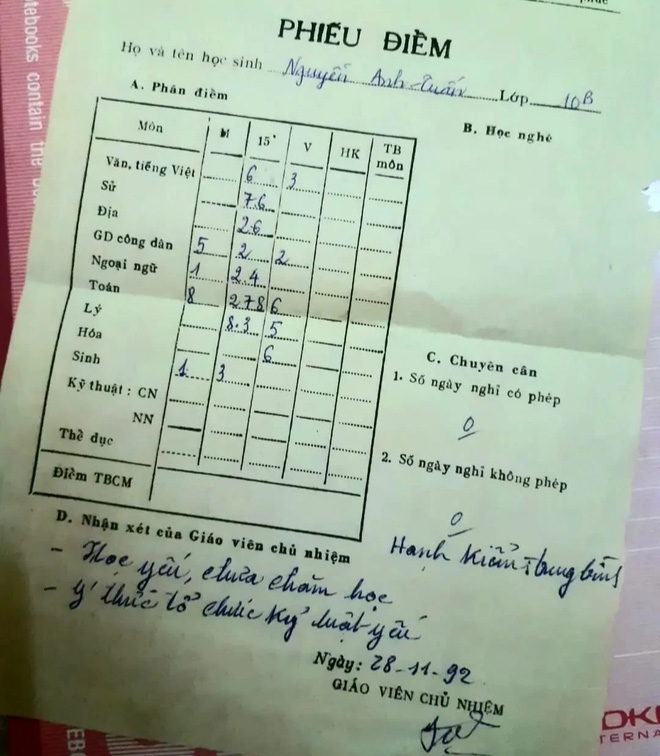 PHIẾU ĐIỂM
Họ và tên học sinh Nguyễn Anh Tuấn Lớp 10B
A. Phần điểm
B. Học nghề
Môn M 15' V HK TB môn
Văn, tiếng Việt 6 3
Sử 76
Địa 26
GD công dân 5 2 2
Ngoại ngữ 1 24
Toán 8 278 6
Lý 8.3 5
Hóa 6
Sinh 1 3
Kỹ thuật : CN
NN
Thể dục
Điểm TBCM
C. Chuyên cần
1. Số ngày nghỉ có phép
0
2. Số ngày nghỉ không phép
0
Hạnh kiểm trung bình
D. Nhận xét của Giáo viên chủ nhiệm
- Học yếu, chưa chăm học
- Ý thức tổ chức kỷ luật yếu
Ngày: 28-11-92
GIÁO VIÊN CHỦ NHIỆM
tebooks contain the